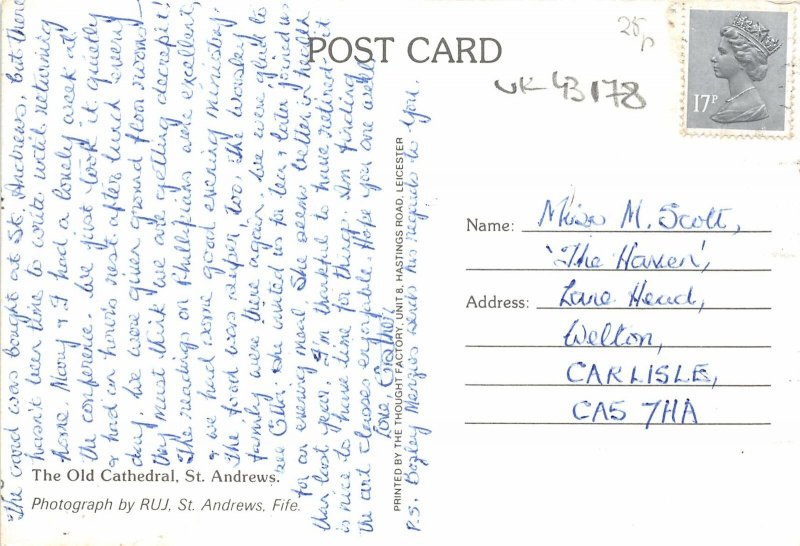 POST CARD
25p
UK 43178
17P
The card was bought at St. Andrews, but there
hasn't been time to write until returning
home. Mary & I had a lovely week at
the conference. We just took it quietly
& had an hour's rest after lunch every
day. We were given ground floor rooms -
they must think we are getting decrepit!
The readings on Philippians were excellent,
& we had some good evening ministry.
The food was super too. The Worsley
family were there again. We were glad to
see Etta. She invited us for tea & later joined us
for an evening meal. She seems better in health
than last year. I'm thankful to have retired - it
is nice to have time for things. Am finding
the art classes enjoyable. Hope you are well.
Love,
P.S. Bagley Menzies sends his regards to you.
The Old Cathedral, St. Andrews.
Photograph by RUJ, St. Andrews, Fife.
PRINTED BY THE THOUGHT FACTORY, UNIT 8, HASTINGS ROAD, LEICESTER
Name: Miss M. Scott,
'The Haven',
Address: Lane Head,
Welton,
CARLISLE,
CA5 7HA